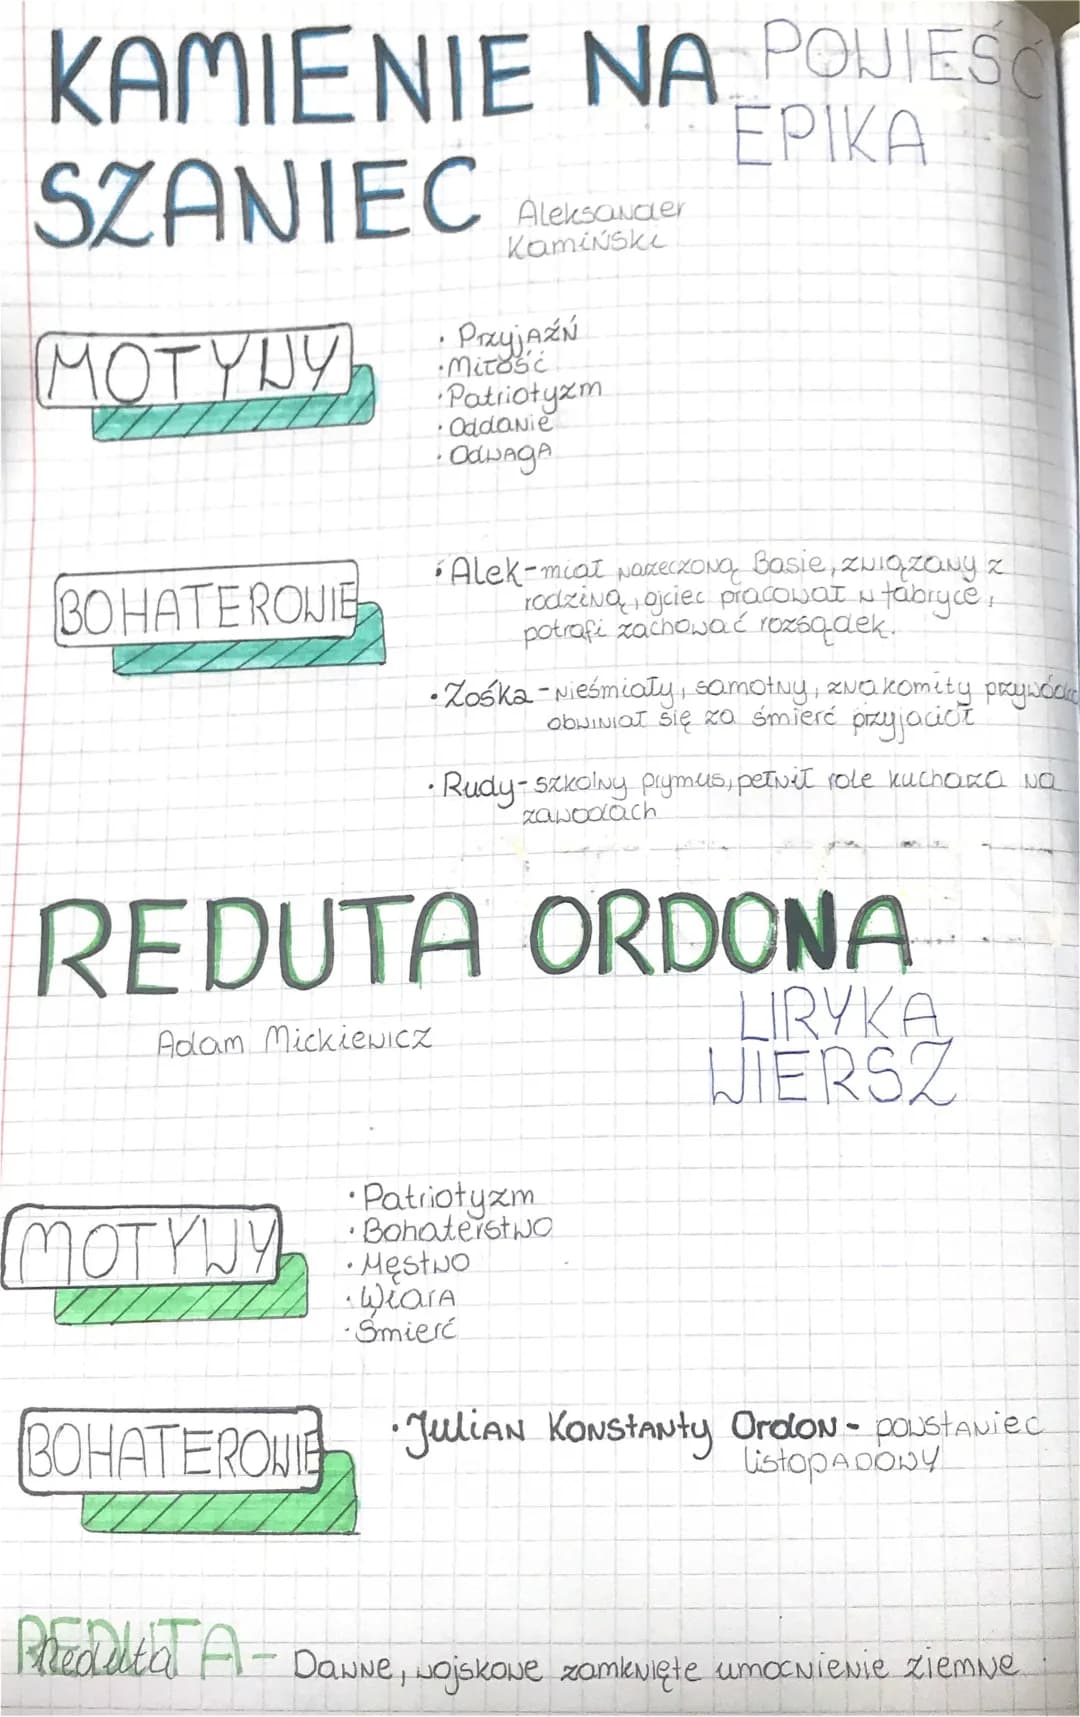 KAMIENIE NA POWIEŚĆ
EPIKA
SZANIEC
Aleksander
Kamiński
MOTYWY
· Przyjaźń
· Miłość
· Patriotyzm
· Oddanie
· Odwaga
BOHATEROWIE
· Alek - miał nażeczoną Basie, związany z
rodziną, ojciec pracował w fabryce,
potrafi zachować rozsądek.
· Zośka - nieśmiały, samotny, znakomity przywódca
obwiniał się za śmierć przyjaciół
· Rudy - szkolny prymus, pełnił role kuchaża na
zawodach
REDUTA ORDONA
Adam Mickiewicz
LIRYKA
WIERSZ
MOTYWY
· Patriotyzm
· Bohaterstwo
· Męstwo
· Wiara
· Śmierć
BOHATEROWIE
· Julian Konstanty Ordon - powstaniec
listopadowy
REDUTA
Reduta - Dawne, wojskowe zamknięte umocnienie ziemne